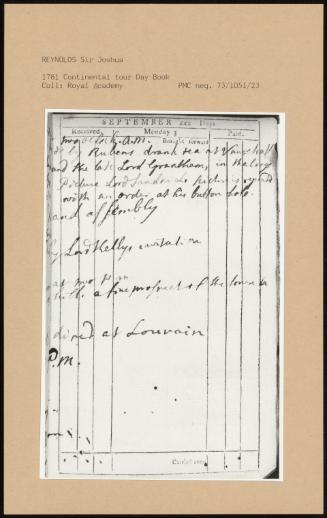 REYNOLDS Sir Joshua
1781 Continental tour Day Book
Coll: Royal Academy PMC neg. 73/1051/23
SEPTEMBER Days
Received. Monday 3 Paid.
two oClock A.M. Brought forward
by Rubens drank tea at
and the late Lord Grantham, in the
Picture Lord
with an order at his button hole.
and assembly
Lord Kellys invitation
at two
a fine prospect of the town
dined at Louvain
P.M.
Carried over